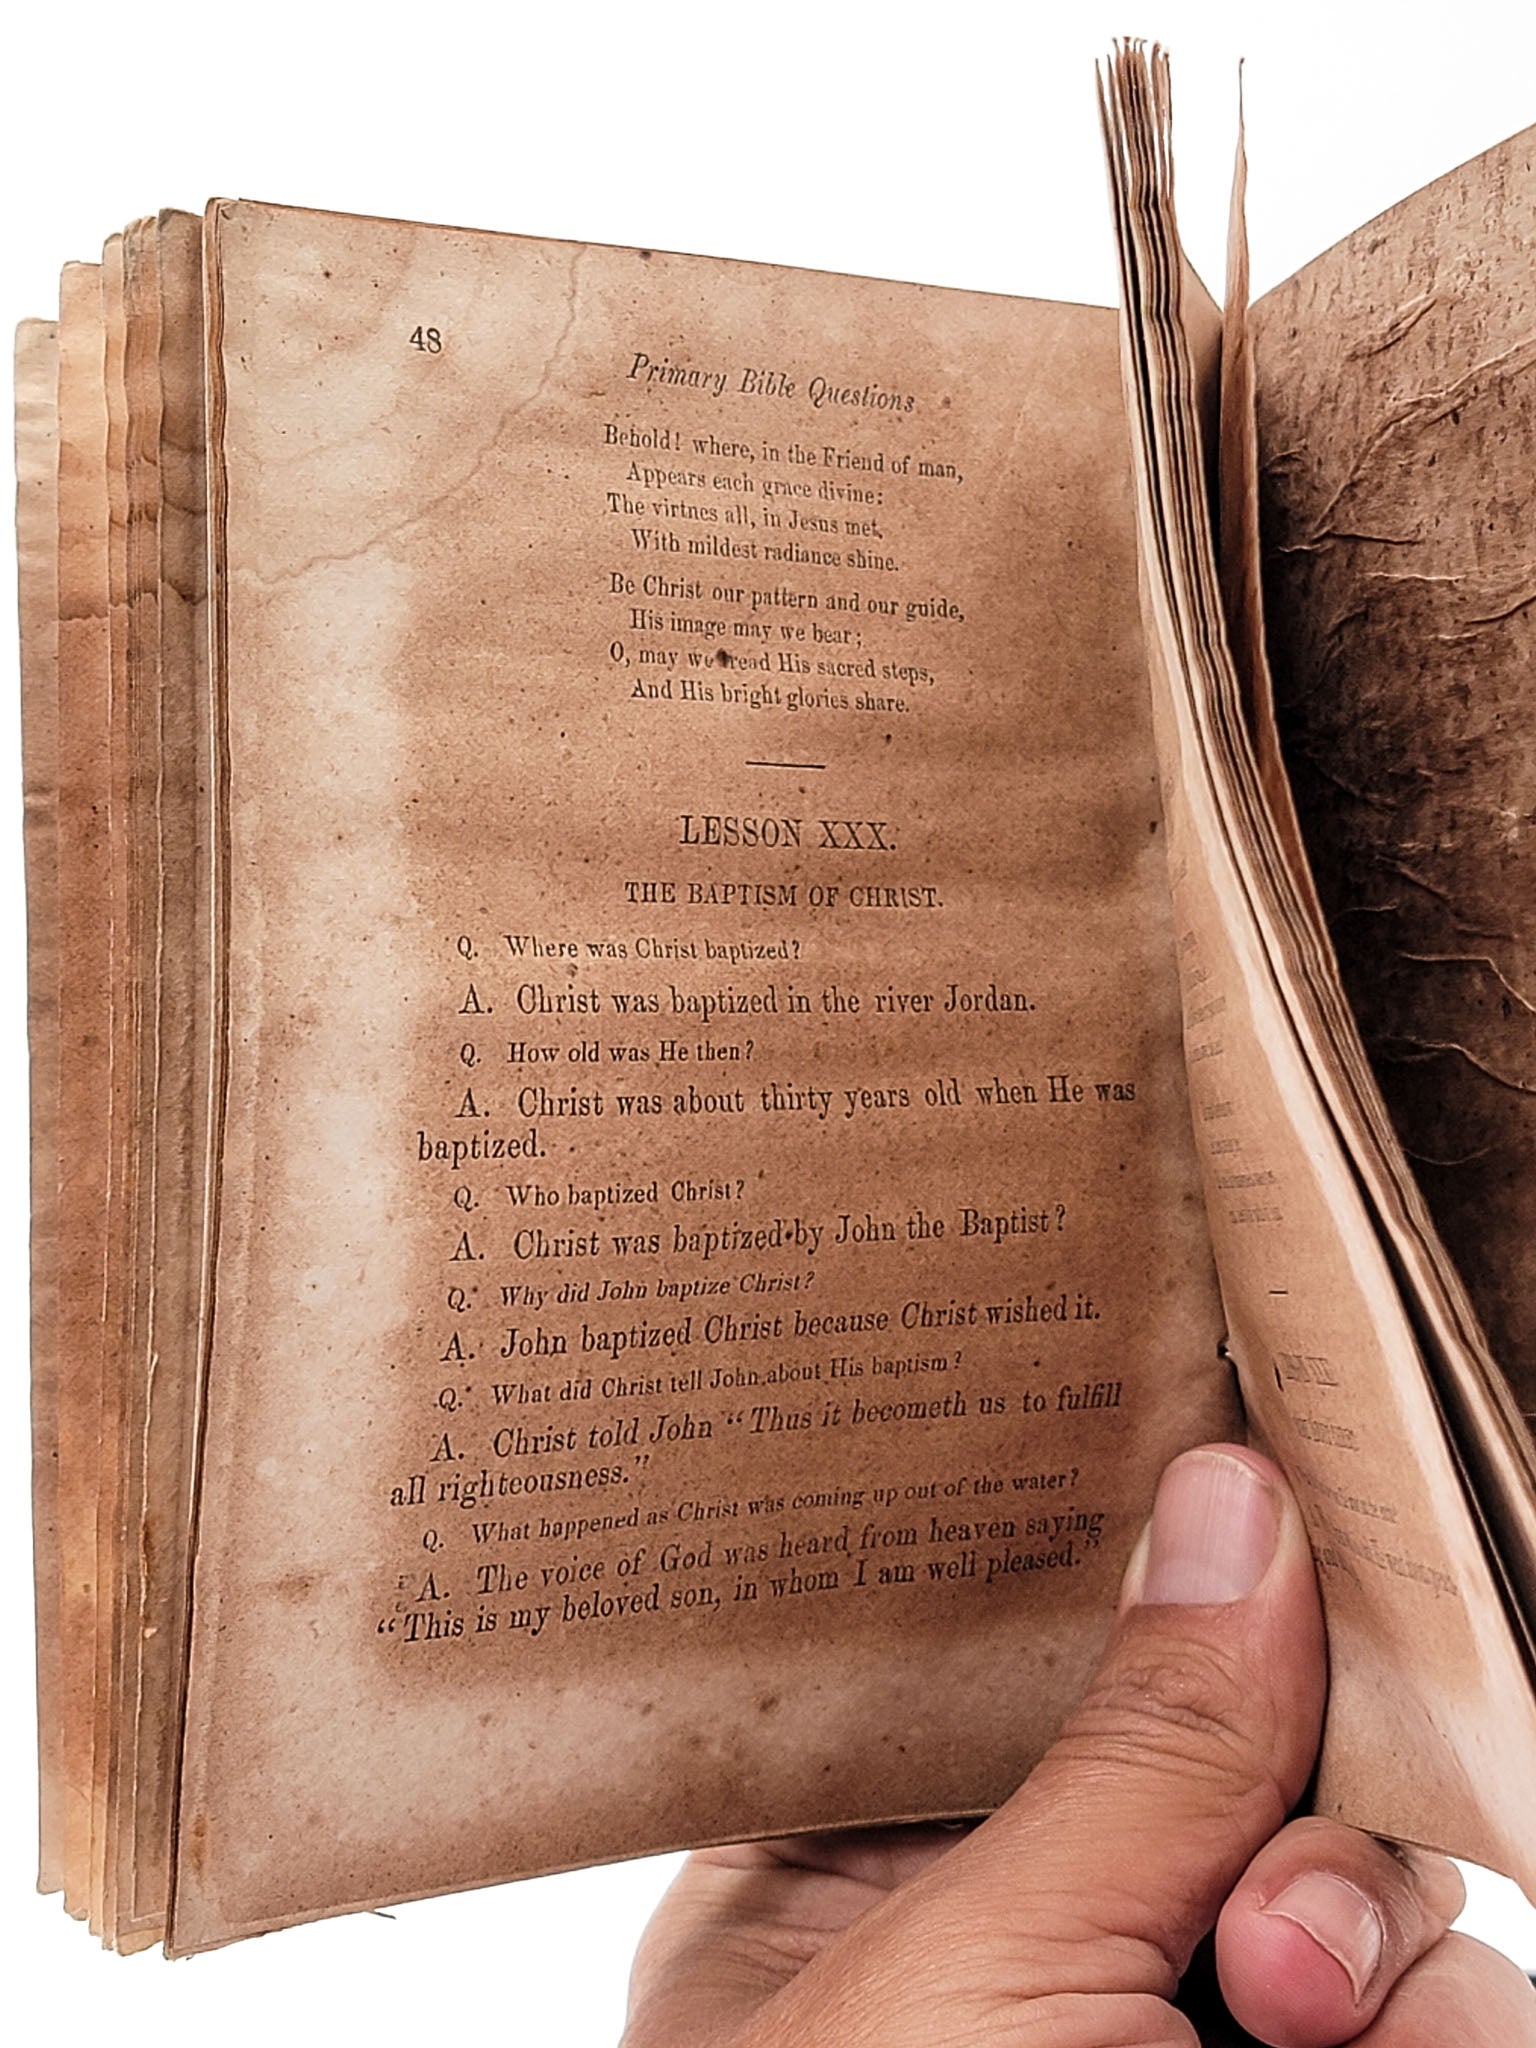 48
Primary Bible Questions
Behold! where, in the Friend of man,
Appears each grace divine:
The virtues all, in Jesus met,
With mildest radiance shine.
Be Christ our pattern and our guide,
His image may we bear;
O, may we tread His sacred steps,
And His bright glories share.
LESSON XXX.
THE BAPTISM OF CHRIST.
Q. Where was Christ baptized?
A. Christ was baptized in the river Jordan.
Q. How old was He then?
A. Christ was about thirty years old when He was
baptized.
Q. Who baptized Christ?
A. Christ was baptized by John the Baptist?
Q. Why did John baptize Christ?
A. John baptized Christ because Christ wished it.
Q. What did Christ tell John about His baptism?
A. Christ told John "Thus it becometh us to fulfill
all righteousness."
Q. What happened as Christ was coming up out of the water?
A. The voice of God was heard from heaven saying
"This is my beloved son, in whom I am well pleased."